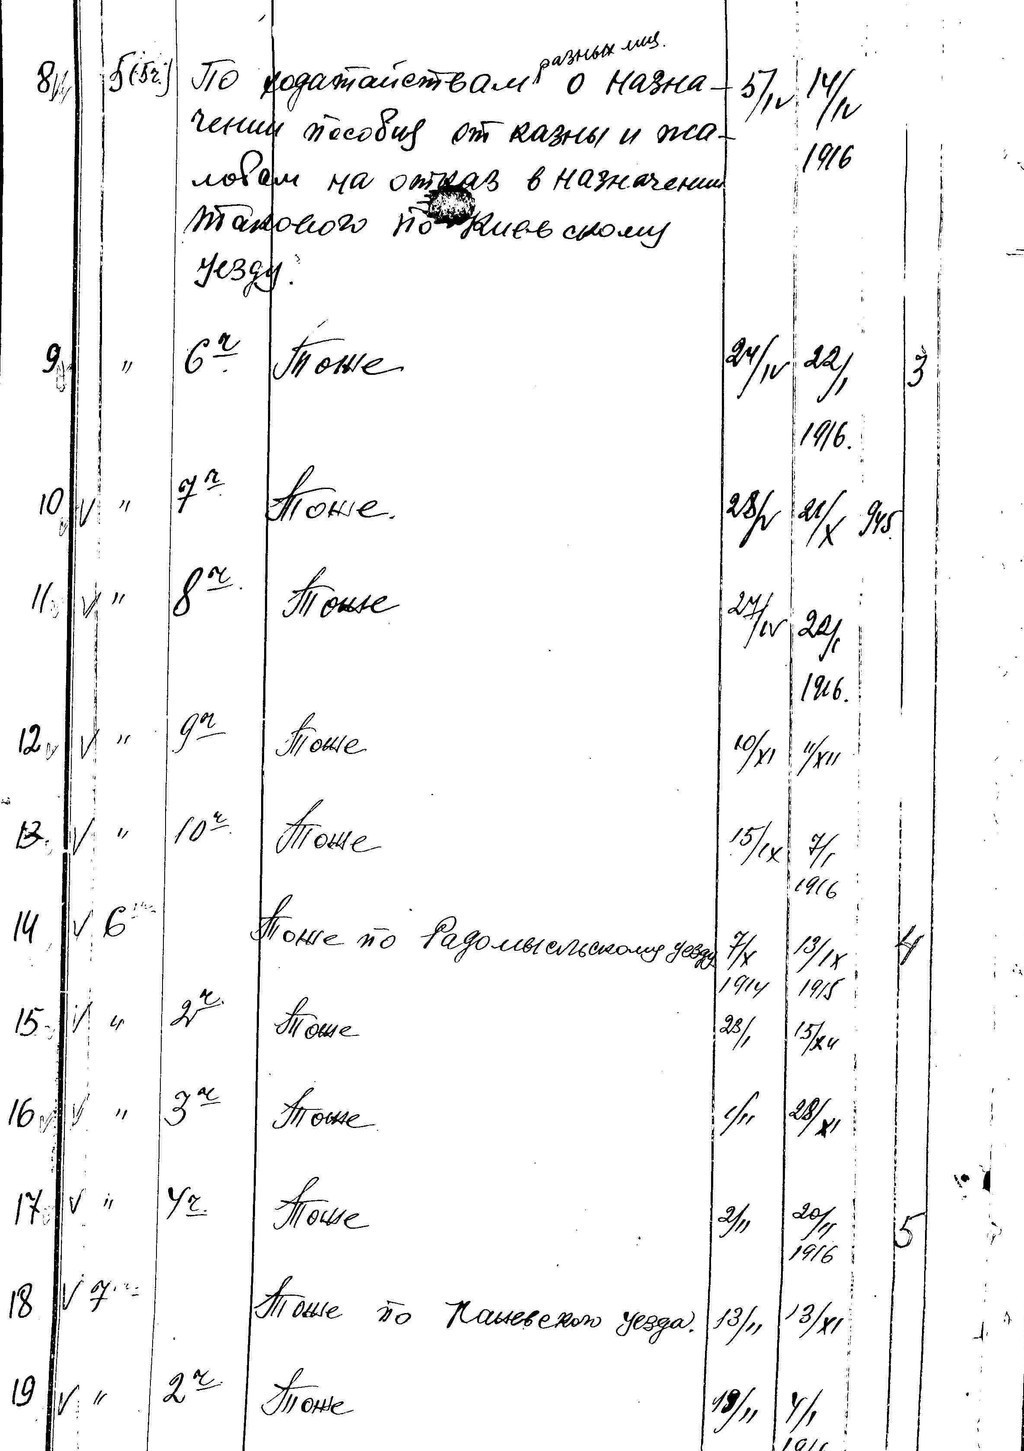 разных лиц.
8 V 5(5ч.) По ходатайствам о назна- 5/IV 14/IV
чении пособия от казны и жа- 1916
лобам на отказ в назначении
такового по Киевскому
уезду.
9 " 6ч. Тоже 24/IV 22/I 3
1916.
10 V " 7ч Тоже. 28/V 21/X 945.
11 V " 8ч. Тоже 27/IV 22/I
1916.
12 V " 9ч Тоже 10/XI 11/XII
13 V " 10ч. Тоже 15/IX 7/I
1916
14 V 6 Тоже по Радомысльскому уезду 7/X 13/IX 4
1914 1915
15 V " 2ч. Тоже 23/I 15/XII
16 V " 3ч Тоже 1/II 28/XI
17 V " 4ч. Тоже 2/II 20/II 5
1916
18 V 7 Тоже по Каневского уезда. 13/II 13/XI
19 V " 2ч Тоже 19/II 4/I
1916